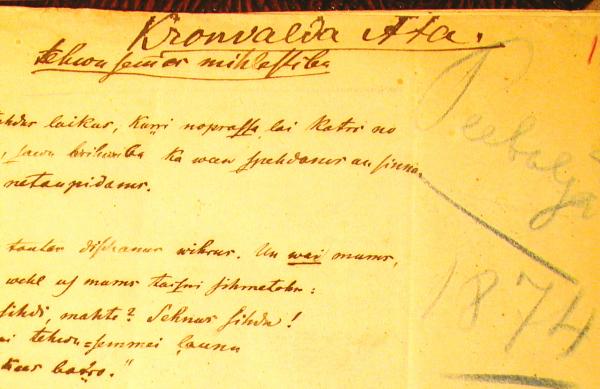 Kronvalda Ata.
tehwu semes mihlestiba
laikus, kurri noprassa lai katrs no
, sawu brihwibu ka wari spehdams un sinna-
netaupidams.
tautas dischanus wihrus. Un wai mums,
wehl us mums taisni sihmetohs:
sihdi, mahte? Sehnus sihdu!
tehwu-semmei launu
baŗo."
Peebalgā
1874